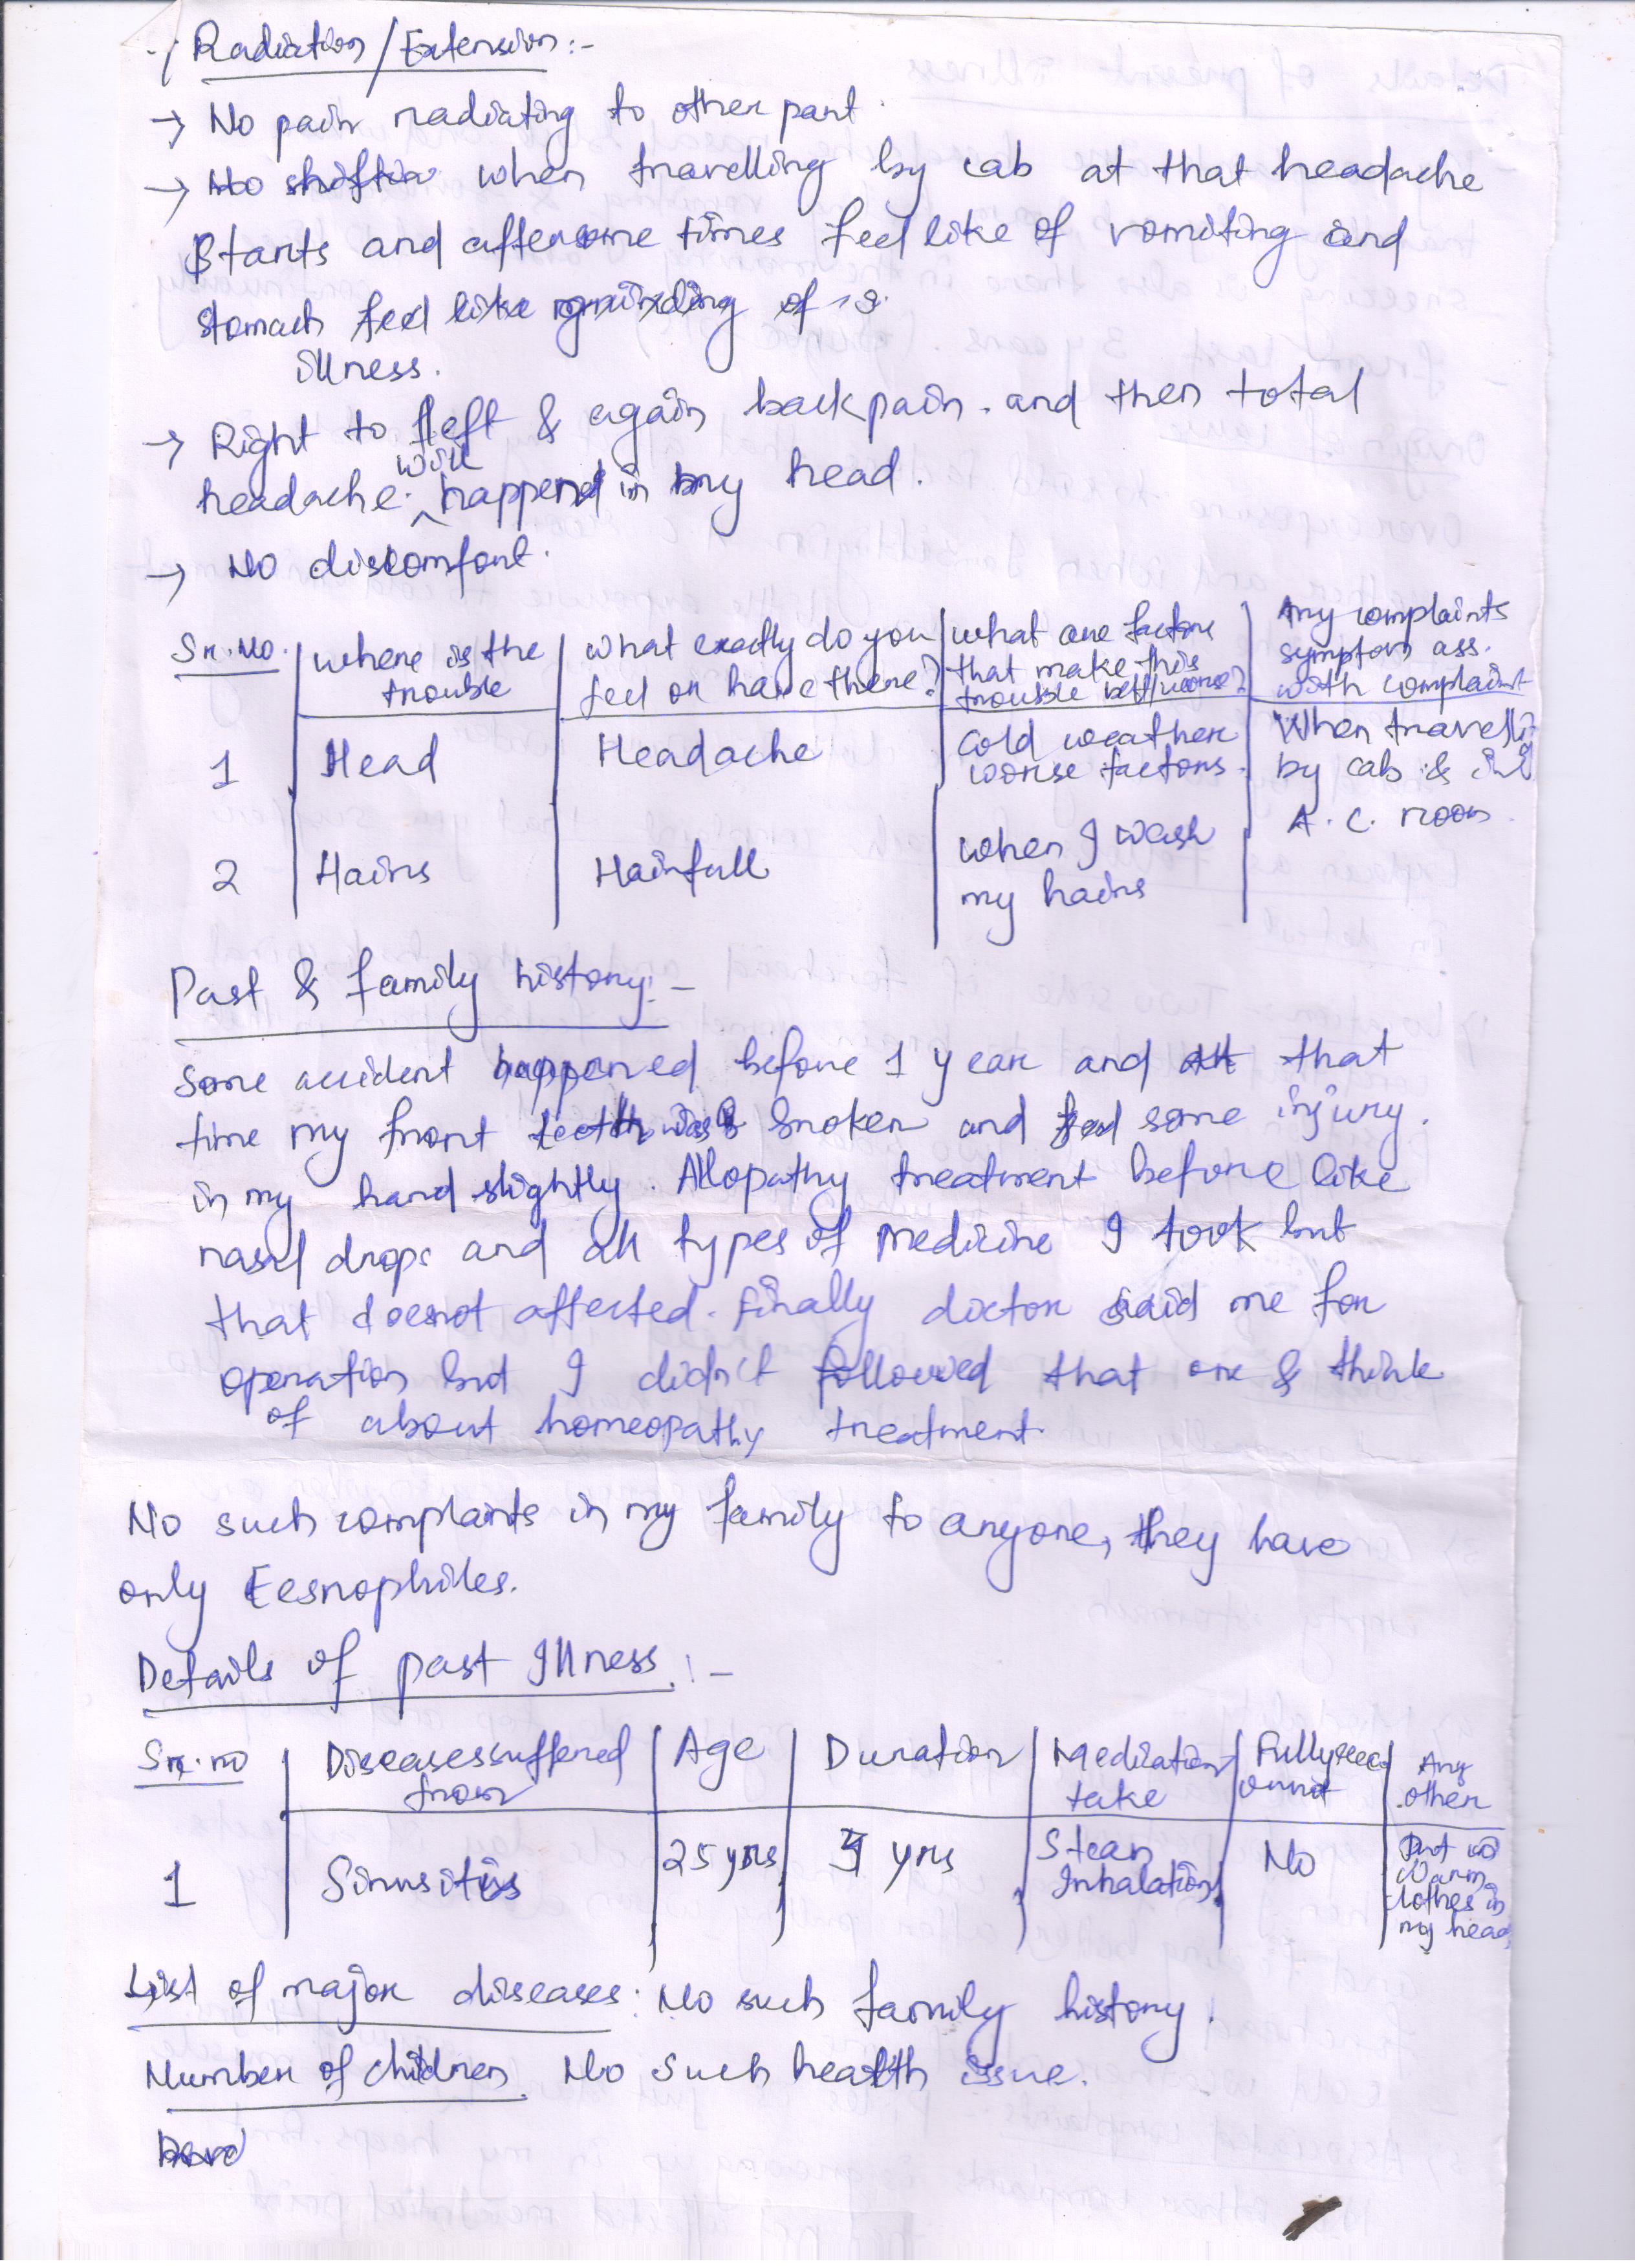 Radiation/Extension:-
→ No pain radiating to other part.
→ when travelling by cab at that headache
starts and after some times feel like of vomiting and
stomach feel like of
illness.
→ Right to left & again back pain. and then total
headache. will happened in my head.
→ No discomfort.
Sr. No. | where is the trouble | what exactly do you feel or have there? | what are factors that make this trouble bett/worse? | Any complaints symptom ass. with complaint
1 | Head | Headache | Cold weather worse factors. | When travelli by cab & A.C. room.
2 | Hairs | Hairfall | when I wash my hairs
Past & family history:-
Some accident happened before 1 year and that
time my front teeth was broken and some injury.
in my hand slightly. Allopathy treatment before like
nasal drops and all types of medicine I took but
that doesnot affected. Finally doctor said me for
operation but I didn't followed that one & think
of about homeopathy treatment.
No such complaints in my family to anyone, they have
only Eesnophiles.
Details of past Illness:-
Sr. no | Diseases suffered from | Age | Duration | Medication take | Fully | Any other
1 | Sinusitis | 25 yrs | yrs | Steam Inhalation | No | warm clothes in my head
List of major diseases: No such family history.
Number of children. No such health issue.